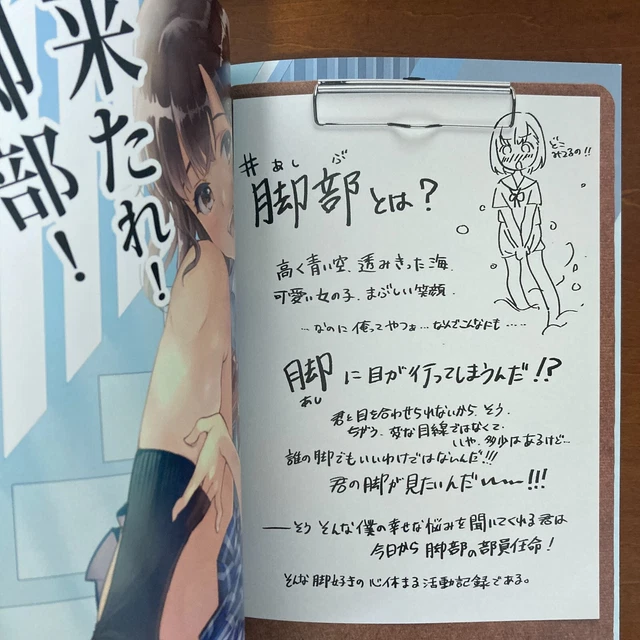 来たれ！
脚部！
#脚部とは？
あしぶ
どこ
みてるの!!
高く青い空、透みきった海、
可愛い女の子、まぶしい笑顔、
…なのに俺ってやつぁ…なんでこんなにも……
脚に目が行ってしまうんだ!?
あし
君と目を合わせられないから、そう、
ちがう、変な目線ではなくて、
いや、多少はあるけど…
誰の脚でもいいわけではないんだ!!!
君の脚が見たいんだ〜〜!!!
――そう そんな僕の幸せな悩みを聞いてくれる君は
今日から脚部の部員任命！
そんな脚好きの心休まる活動記録である。